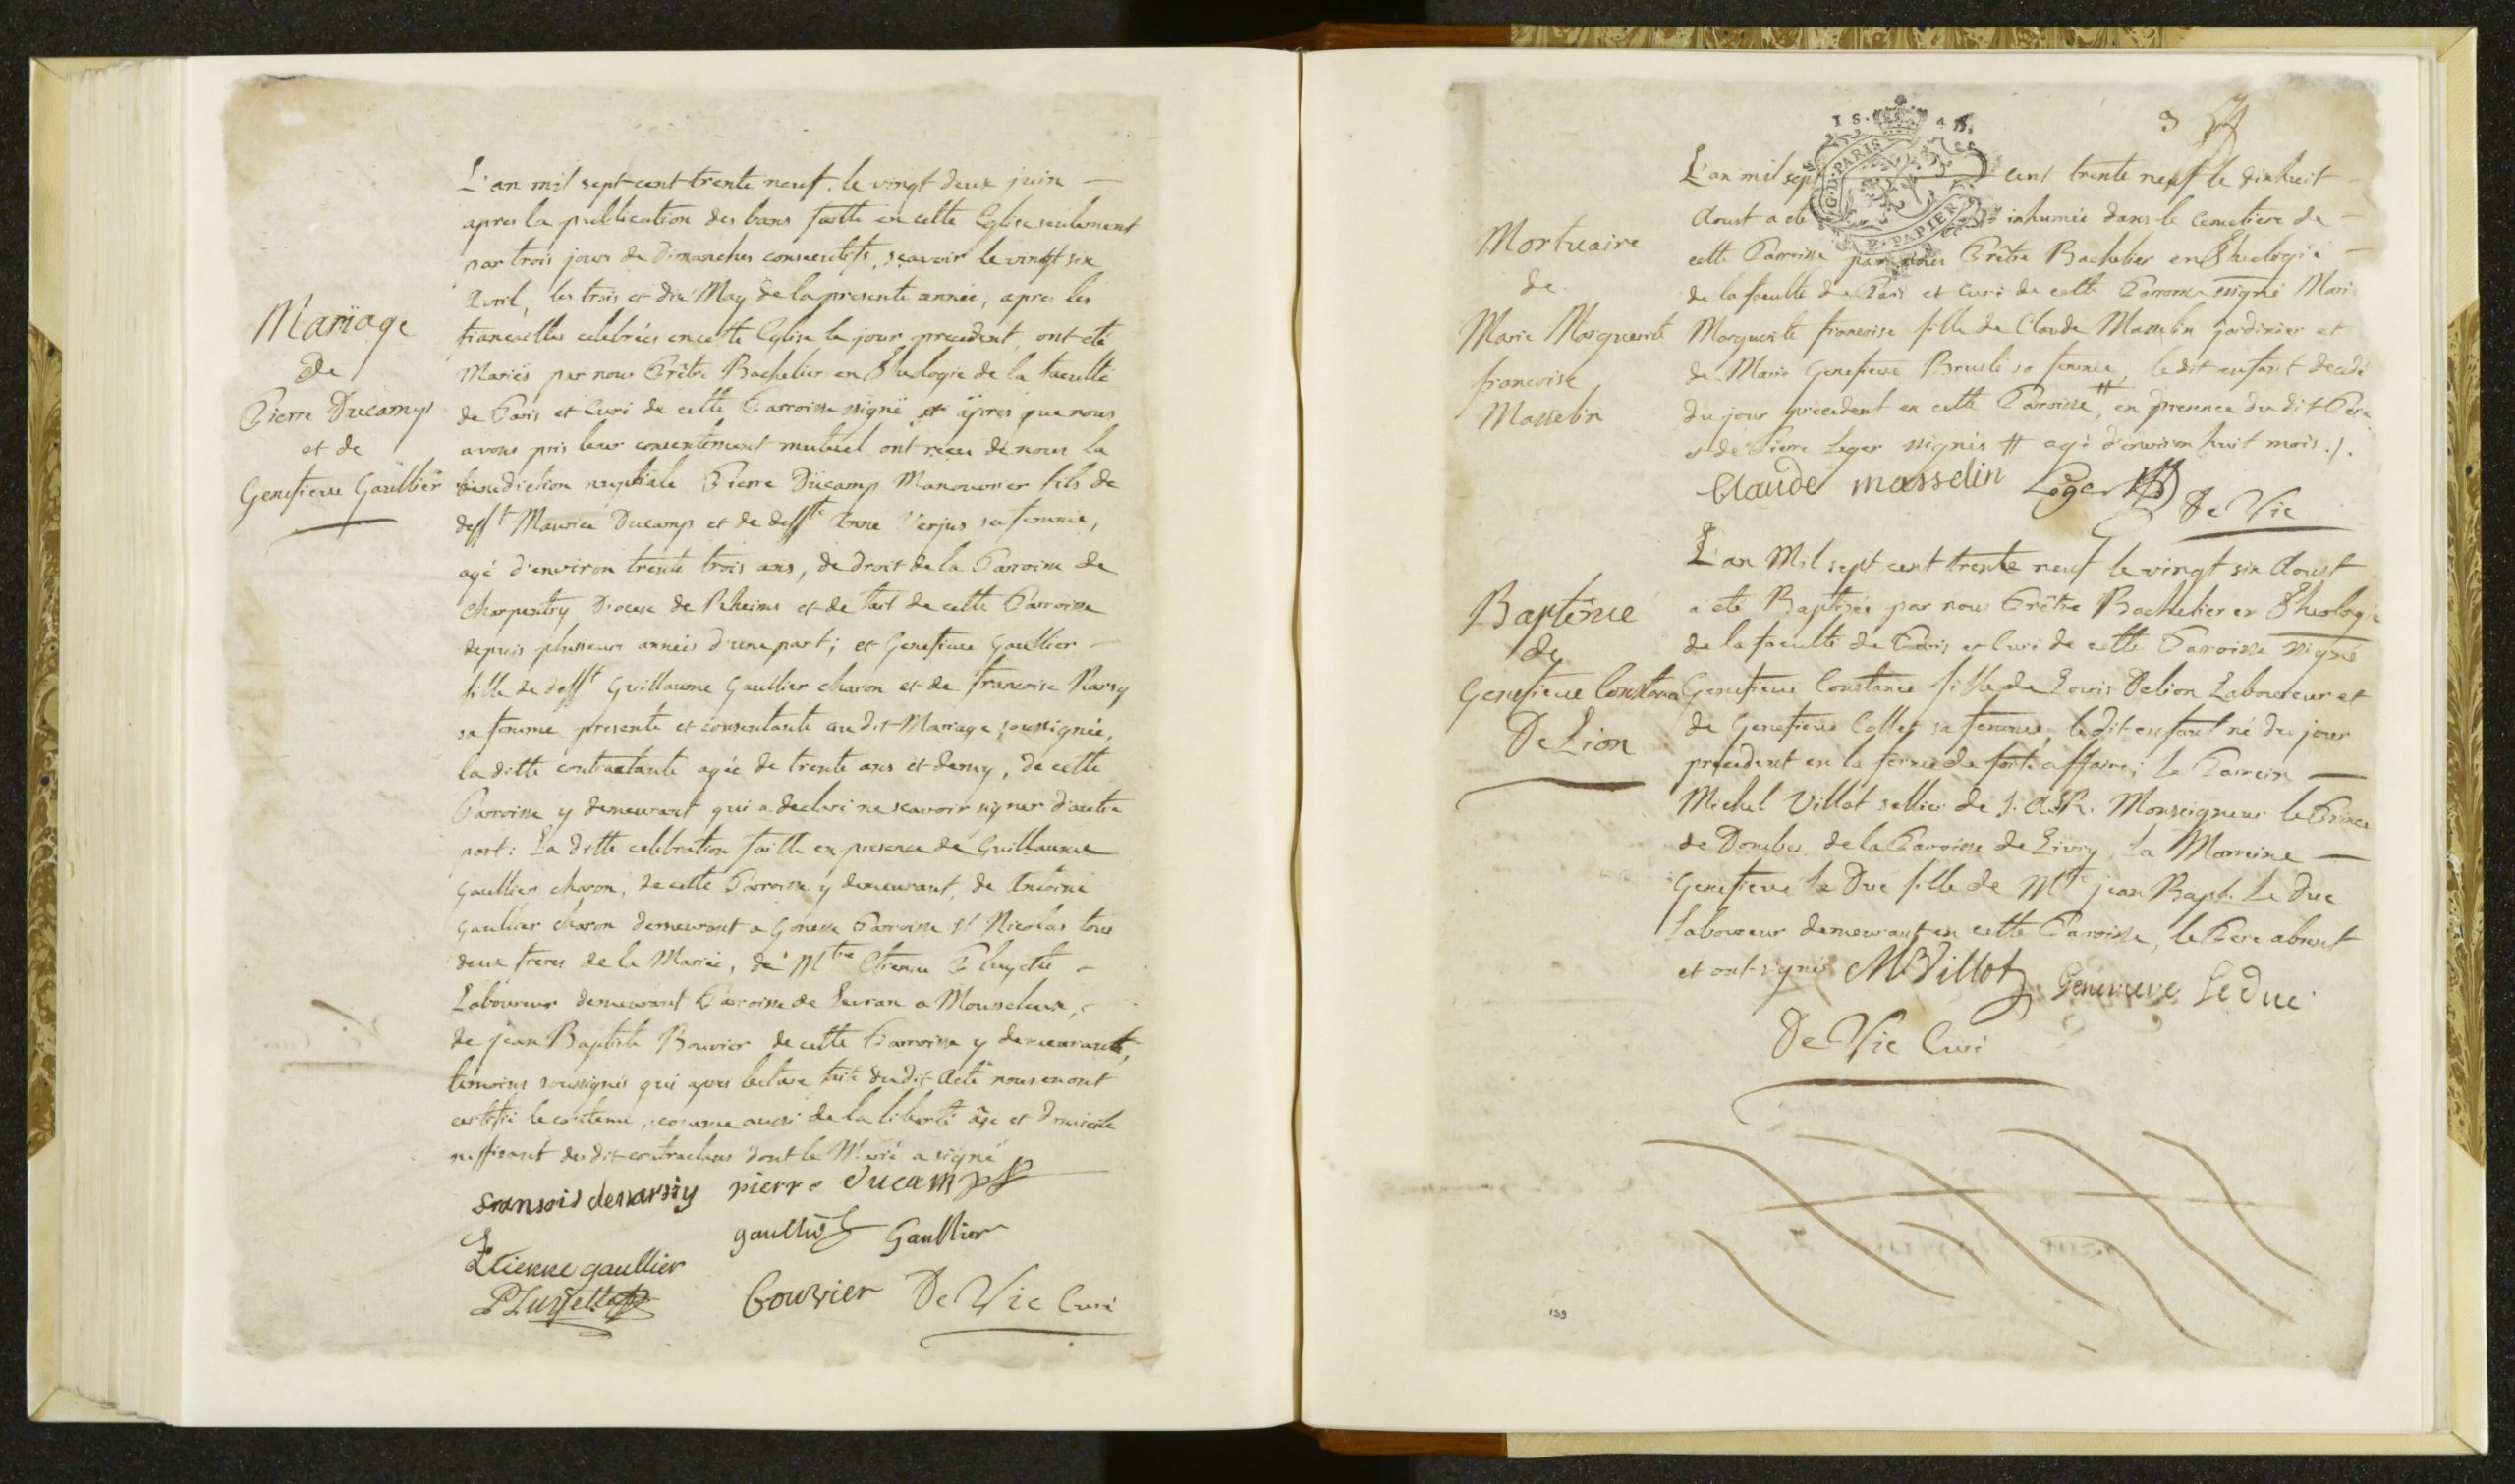 Mariage
de
Pierre Ducamps
et de
Genefieve Gaullier
L'an mil sept cent trente neuf, le vingt deux juin
apres la publication des bans faitte en cette Eglise seulement
par trois jours de Dimanches consecutifs, sçavoir le vingt six
Avril, les trois et dix May de la presente année, apres les
fiancailles celebrées en cette Eglise le jour precedent, ont eté
Mariés par nous Prêtre Bachelier en Theologie de la faculté
de Paris et Curé de cette Parroisse ssigné et apres que nous
avons pris leur consentement mutuel ont reçu de nous la
benediction nuptiale Pierre Ducamp Manouvrier fils de
defft Maurice Ducamp et de deffte Anne Verjus sa femme,
agé d'environ trente trois ans, de droit de la Parroisse de
Charpentry Diocese de Rheims et de fait de cette Parroisse
depuis plusieurs années d'une part; et Genefieve Gaullier
fille de defft Guillaume Gaullier charon et de francoise Rarsy
sa femme presente et consentante au dit Mariage soussignée,
la ditte contractante agée de trente ans et demy, de cette
Parroisse y demeurant qui a declaré ne scavoir signer d'autre
part: La ditte celebration faitte en presence de Guillaume
Gaullier charon, de cette Parroisse y demeurant, de Antoine
Gaullier charon demeurant a Gonesse Parroisse St Nicolas tous
deux freres de la Mariée, de Mtre Etienne Pluyette
Laboureur demeurant Parroisse de Sevran a Mousseleux,
de jean Baptiste Bouvier de cette Parroisse y demeurant,
temoins soussignés qui apres lecture fait du dit Acte nous en ont
certifié le contenu, comme aussi de la liberté âge et domicile
suffisant des dit contractans dont le Marié a signé
pierre ducamps
gaullier Gaullier
Etienne gaullier
Pluyette Bouvier De Vic Curé
3
Mortuaire
de
Marie Marguerite
francoise
Masselin
IS. 4 S.
G. D. PARIS
P. PAPIER
L'an mil sept cent trente neuf le dixhuit
Aoust a eté inhumée dans le Cemetiere de
cette Parroisse par nous Prêtre Bachelier en Theologie
de la faculté de Paris et Curé de cette Parroisse ssigné Marie
Marguerite francoise fille de Claude Masselin Jardinier et
de Marie Genefieve Bruslé sa femme, le dit enfant decedé
du jour precedent en cette Parroisse #, en presence du dit Pere
et de Pierre Leger ssignés # agé d'environ huit mois ./.
Claude masselin Leger De Vic
Baptême
de
Genefieve Constance
De Lion
L'an Mil sept cent trente neuf le vingt six Aoust
a eté Baptisée par nous Prêtre Bachelier en Theologie
de la faculté de Paris et Curé de cette Paroisse ssigné
Genefieve Constance fille de Louis Delion Laboureur et
de Genefieve Collet sa femme, le dit enfant né du jour
precedent en la ferme de forte affaire; le Parrein
Michel Villot sellier de S. A. S. R. Monseigneur le Prince
de Dombes de la Paroisse de Livry, La Marreine
Genefieve Le Duc fille de Mtre jean Bapt. Le Duc
Laboureur demeurant en cette Paroisse, le Pere absent
et ont signés M Villot Genevieve Leduc
De Vic Curé